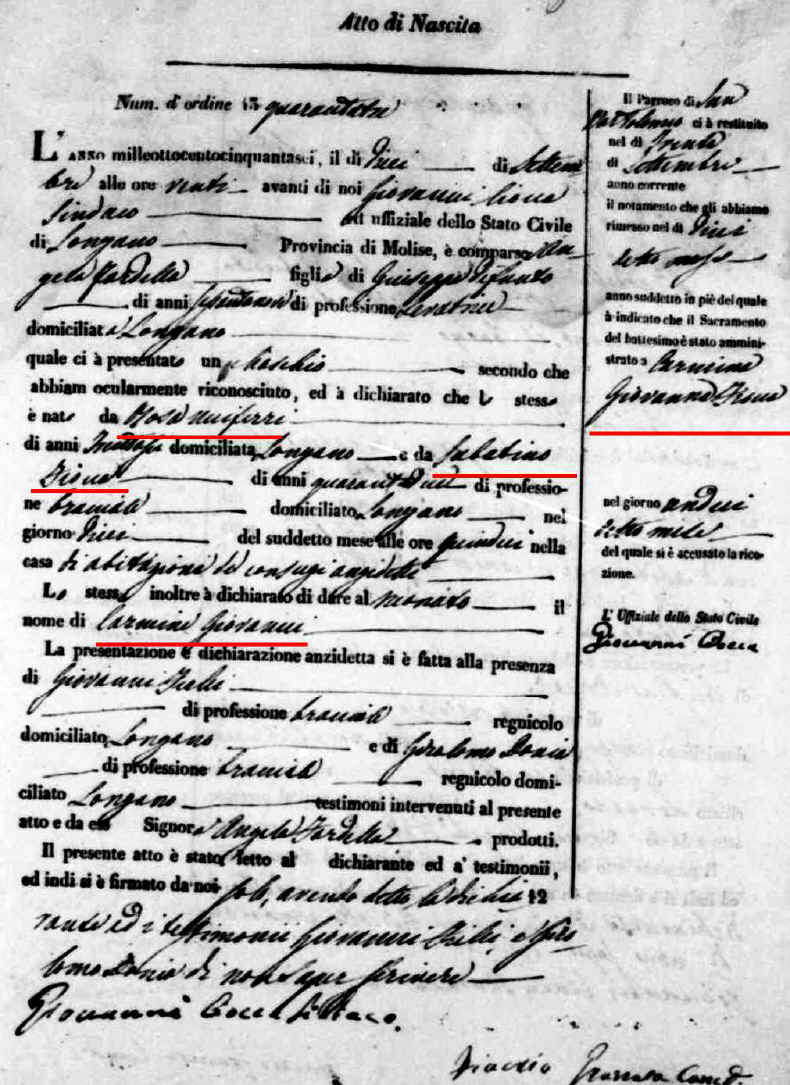 Atto di Nascita
Num. d'ordine 43 quarantatre
L'anno milleottocentocinquantasei, il dì Dieci di Settem
bre alle ore venti avanti di noi Giovanni Cocca
Sindaco ed uffiziale dello Stato Civile
di Longano Provincia di Molise, è comparsa An-
gela figlia di Giuseppe
di anni di professione Levatrice
domiciliata Longano
quale ci à presentato un Maschio secondo che
abbiam ocularmente riconosciuto, ed à dichiarato che lo stesso
è nato da Rosa
di anni domiciliata Longano e da Sabatino
di anni quarantadue di professio-
ne bracciale domiciliato Longano nel
giorno Dieci del suddetto mese alle ore quindici nella
casa di abitazione de' conjugi anzidetti
Lo stesso inoltre à dichiarato di dare al neonato il
nome di Carmine Giovanni
La presentazione e dichiarazione anzidetta si è fatta alla presenza
di Giovanni
di professione bracciale regnicolo
domiciliato Longano e di Girolomo Donia
di professione bracciale regnicolo domi-
ciliato Longano testimoni intervenuti al presente
atto e da essa Signora Angela prodotti.
Il presente atto è stato letto al dichiarante ed a' testimonii,
ed indi si è firmato da noi soli, avendo detto la dichia 42
rante ed i testimonii Giovanni e Giro
lomo Donia di non saper scrivere
Giovanni Cocca Sindaco.
Il Parroco di San
Bartolomeo ci à restituito
nel dì Trenta
di Settembre
anno corrente
il notamento che gli abbiamo
rimesso nel dì Dieci
detto mese
anno suddetto in piè del quale
à indicato che il Sacramento
del battesimo è stato ammini-
strato a Carmine
Giovanni
nel giorno undici
detto mese
del quale si è accusato la rice-
zione.
L'Uffiziale dello Stato Civile
Giovanni Cocca